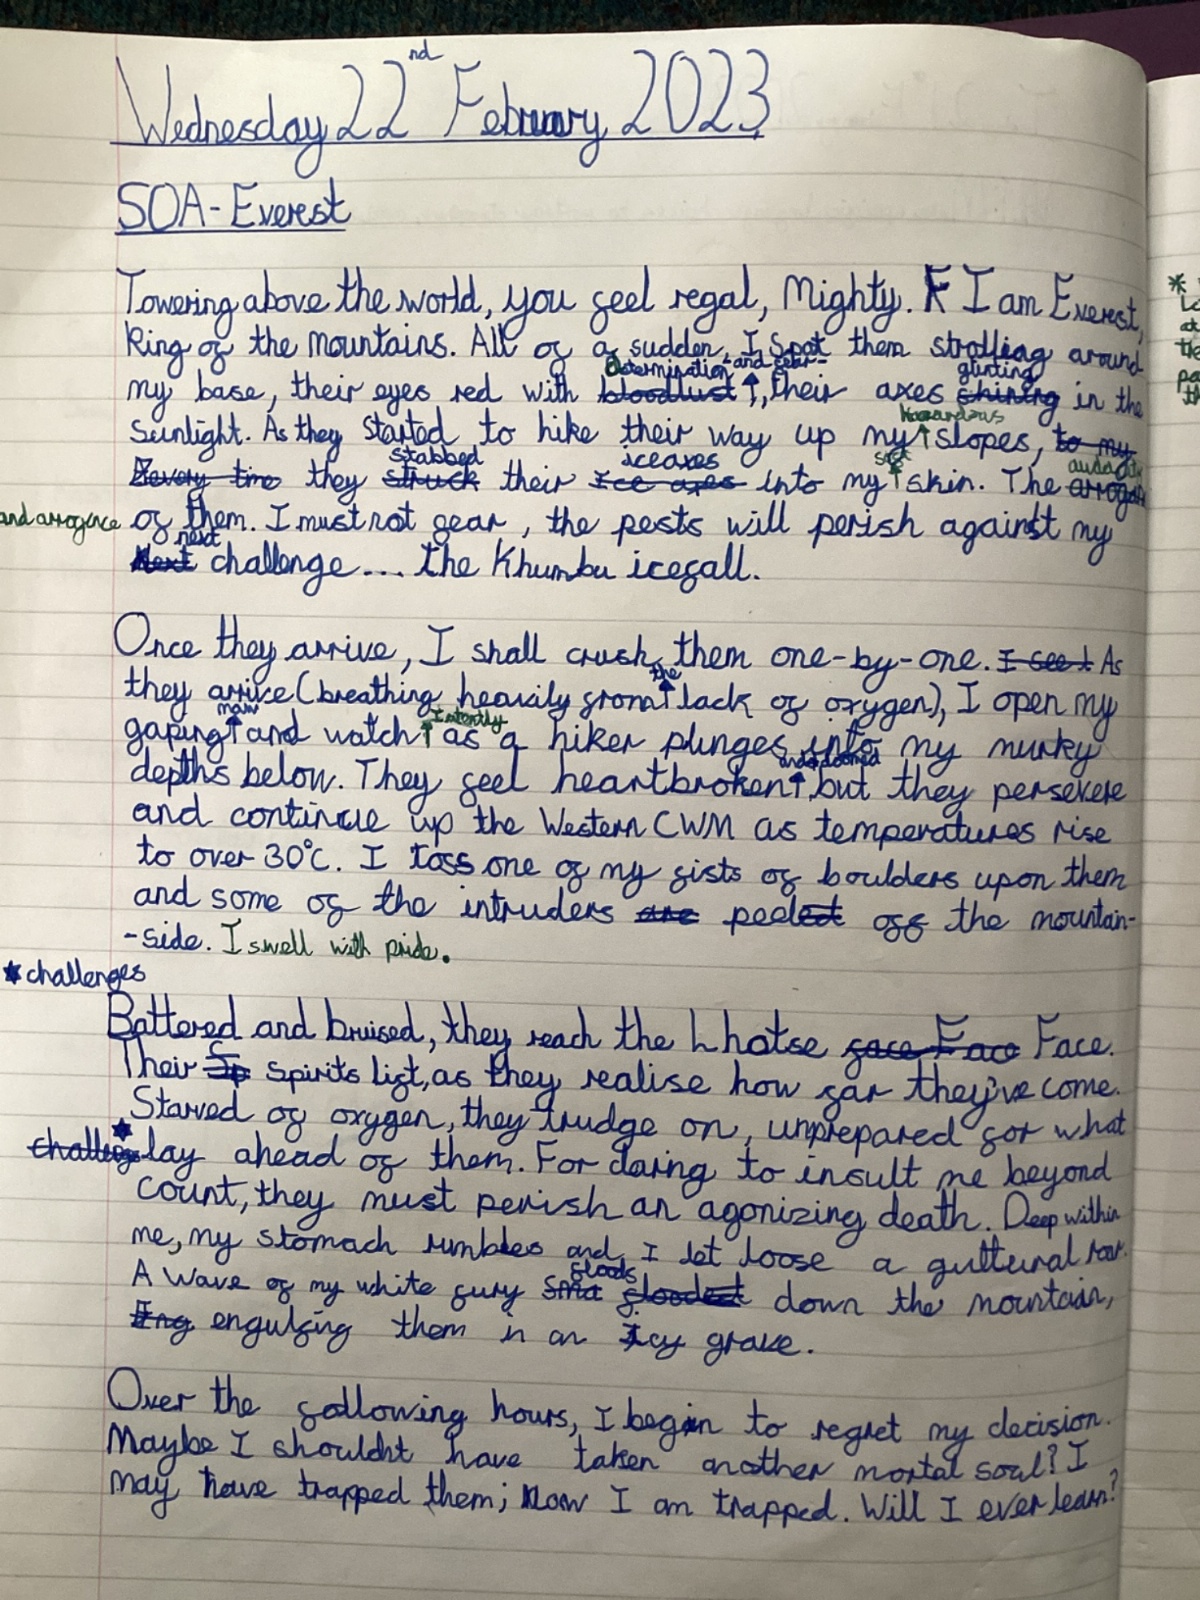 Wednesday 22nd February 2023
SOA - Everest
Towering above the world, you feel regal, Mighty. I am Everest,
King of the mountains. All of a sudden, I spot them strolling around
determination -and fear- glinting
my base, their eyes red with bloodlust, their axes shining in the
hazardous
sunlight. As they started to hike their way up my slopes, to my
stabbed iceaxes soft audacity
every time they struck their Ice axes into my skin. The
and arrogence of them. I must not fear, the pests will perish against my
next
Next challenge.... the Khumbu icefall.
Once they arrive, I shall crush them one-by-one. I see t As
the
they arrive (breathing heavily from lack of oxygen), I open my
maw Intently
gaping and watch as a hiker plunges into my murky
and doomed
depths below. They feel heartbroken, but they persevere
and continue up the Western CWM as temperatures rise
to over 30°C. I toss one of my fists of boulders upon them
and some of the intruders are peeled off the mountain-
-side. I swell with pride.
*challenges
Battered and bruised, they reach the Lhotse face Face Face.
Their Sp spirits lift, as they realise how far they've come.
Starved of oxygen, they trudge on, unprepared for what
* lay ahead of them. For daring to insult me beyond
count, they must perish an agonizing death. Deep within
me, my stomach rumbles and I let loose a guttural roar.
floods
A wave of my white fury sma flooded down the mountain,
Eng engulfing them in an Icy grave.
Over the following hours, I begin to regret my decision.
Maybe I shouldnt have taken another mortal soul? I
may have trapped them; Now I am trapped. Will I ever learn?